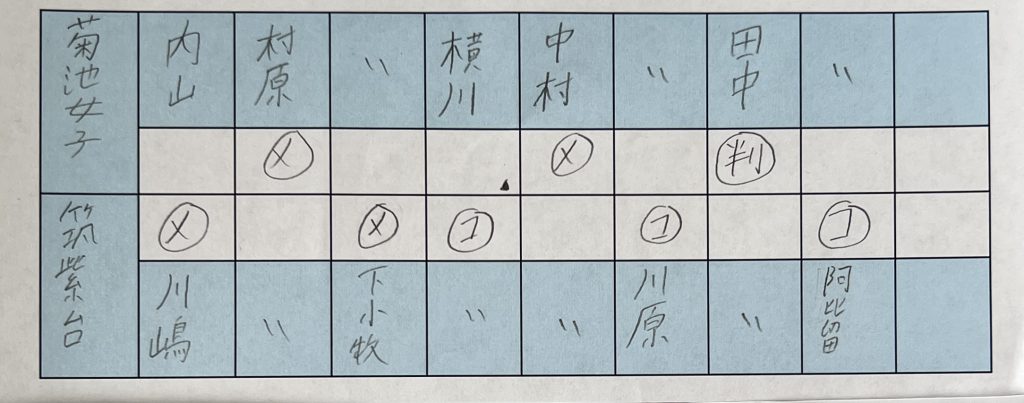 菊池女子 内山 村原 〃 横川 中村 〃 田中 〃
メ メ 判
筑紫台 メ メ コ コ コ
川嶋 〃 下小牧 〃 〃 川原 〃 阿比留